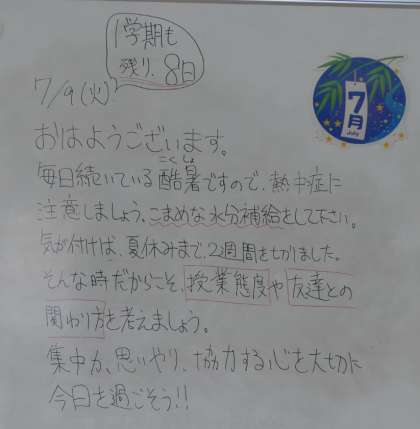 1学期も
残り、8日
7/9(火)
7月
July
おはようございます。
毎日続いている酷暑ですので、熱中症に
こくしょ
注意しましょう。こまめな水分補給をして下さい。
気が付けば、夏休みまで、2週間をきりました。
そんな時だからこそ、授業態度や友達との
関わり方を考えましょう。
集中力、思いやり、協力する心を大切に
今日を過ごそう!!